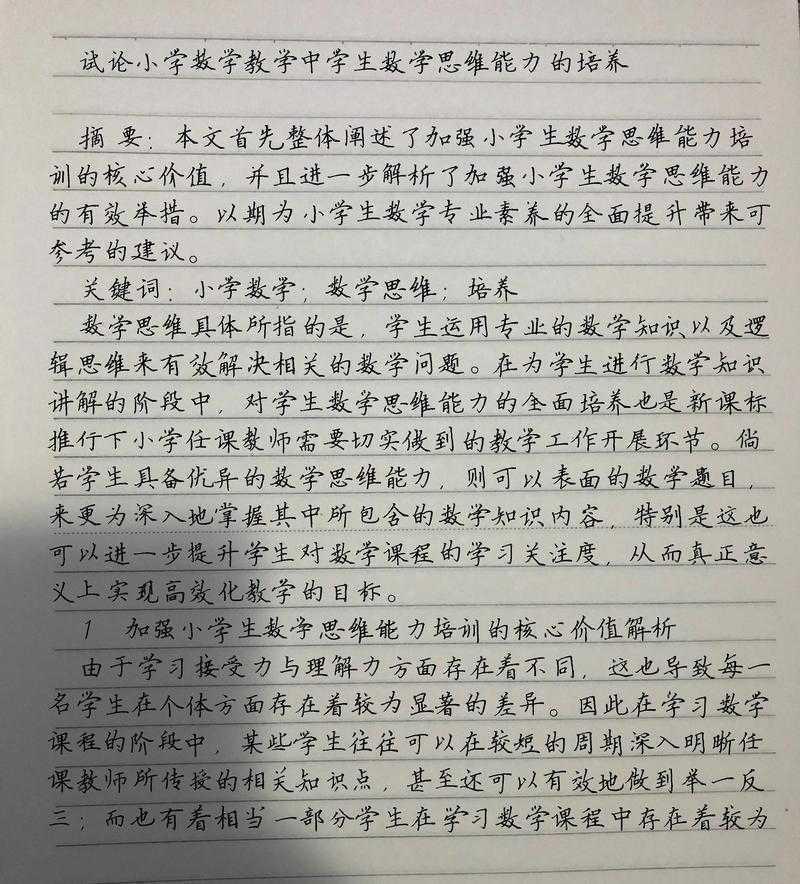 试论小学数学教学中学生数学思维能力的培养
摘要：本文首先整体阐述了加强小学生数学思维能力培
训的核心价值，并且进一步解析了加强小学生数学思维能力
的有效举措。以期为小学生数学专业素养的全面提升带来可
参考的建议。
关键词：小学数学；数学思维；培养
数学思维具体所指的是，学生运用专业的数学知识以及逻
辑思维来有效解决相关的数学问题。在为学生进行数学知识
讲解的阶段中，对学生数学思维能力的全面培养也是新课标
推行下小学任课教师需要切实做到的教学工作开展环节。倘
若学生具备优异的数学思维能力，则可以表面的数学题目，
来更为深入地掌握其中所包含的数学知识内容，特别是这也
可以进一步提升学生对数学课程的学习关注度，从而真正意
义上实现高效化教学的目标。
1 加强小学生数学思维能力培训的核心价值解析
由于学习接受力与理解力方面存在着不同，这也导致每一
名学生在个体方面存在着较为显著的差异。因此在学习数学
课程的阶段中，某些学生往往可以在较短的周期深入明晰任
课教师所传授的相关知识点，甚至还可以有效地做到举一反
三；而也有着相当一部分学生在学习数学课程中存在着较为